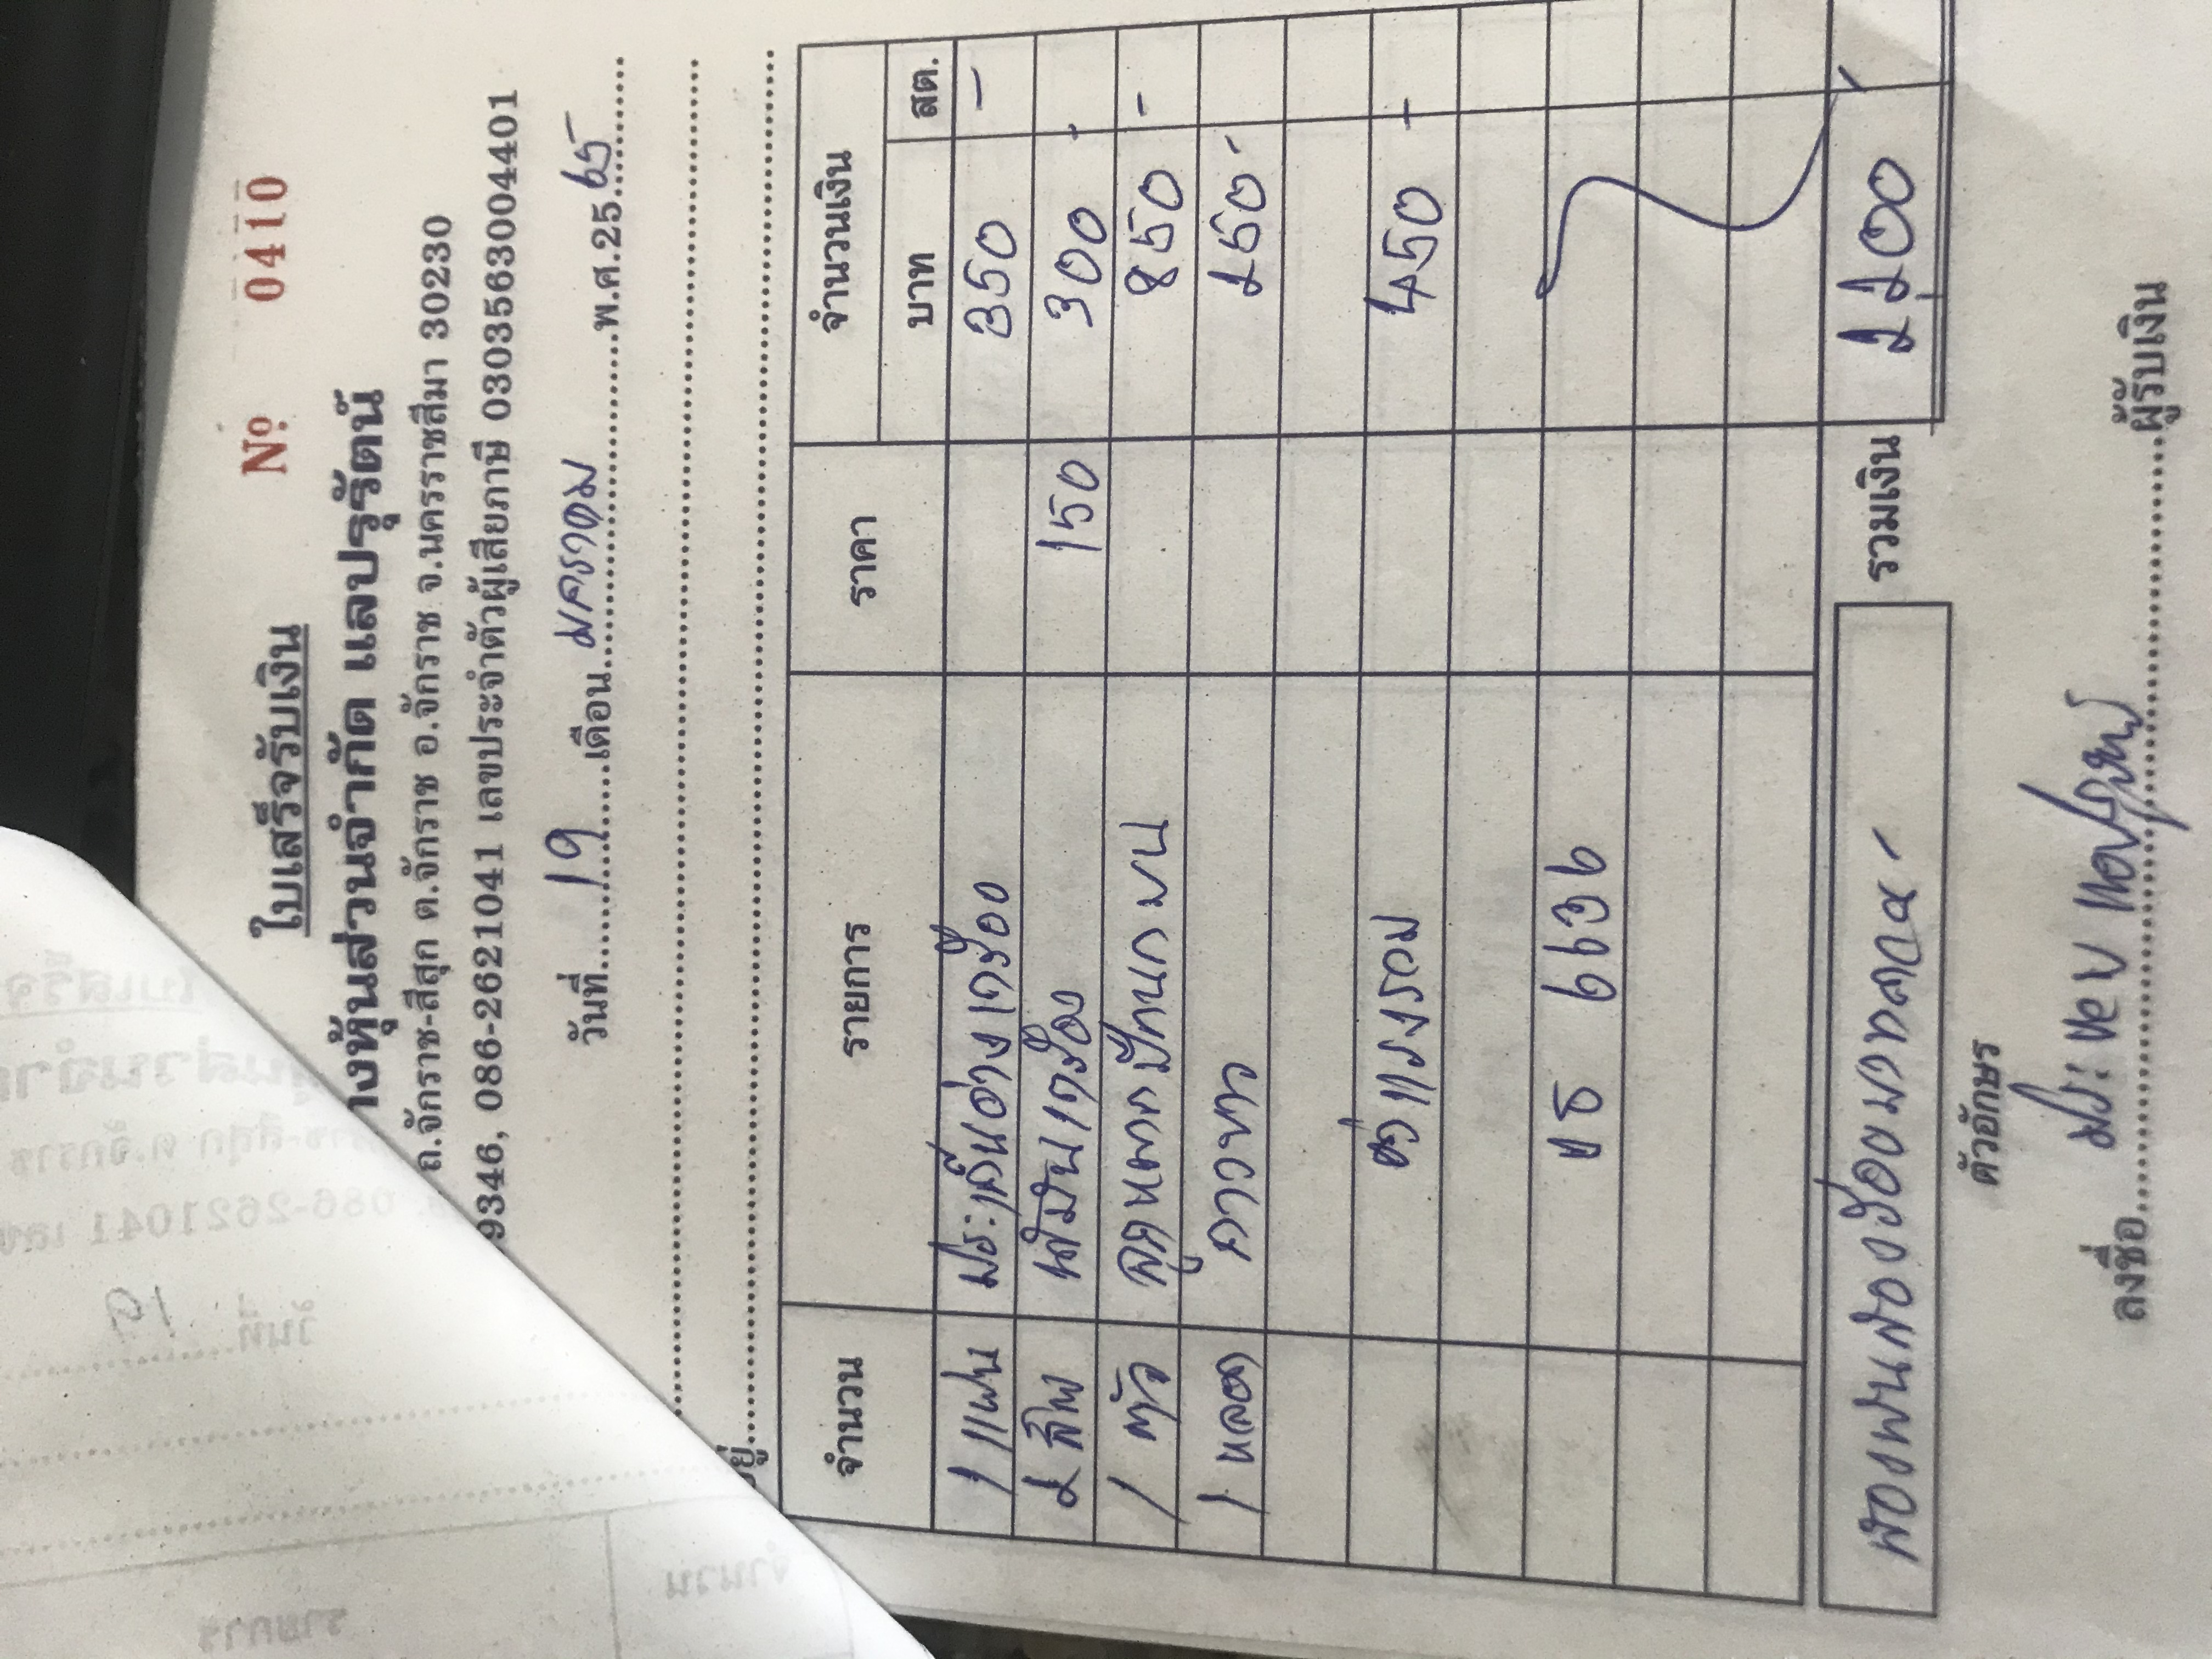 ใบเสร็จรับเงิน
Nº 0410
างหุ้นส่วนจำกัด แลปรุรัตน์
ถ.จักราช-สีสุก ต.จักราช อ.จักราช จ.นครราชสีมา 30230
9346, 086-2621041 เลขประจำตัวผู้เสียภาษี 0303563004401
วันที่ 19 เดือน มกราคม พ.ศ.25 65
จำนวน รายการ ราคา จำนวนเงิน
บาท สต.
1 แผ่น ประเก็นอ่างเครื่อง 350 -
2 ลิตร น้ำมันเครื่อง 150 300 -
1 ตัว ลูกหมากปีกนกบน 850 -
1 หลอด กาวขาว 150 -
ค่าแรงรวม 450 -
บธ 6636
สองพันสองร้อยบาทถ้วน - รวมเงิน 2200
ตัวอักษร
ลงชื่อ ผู้รับเงิน